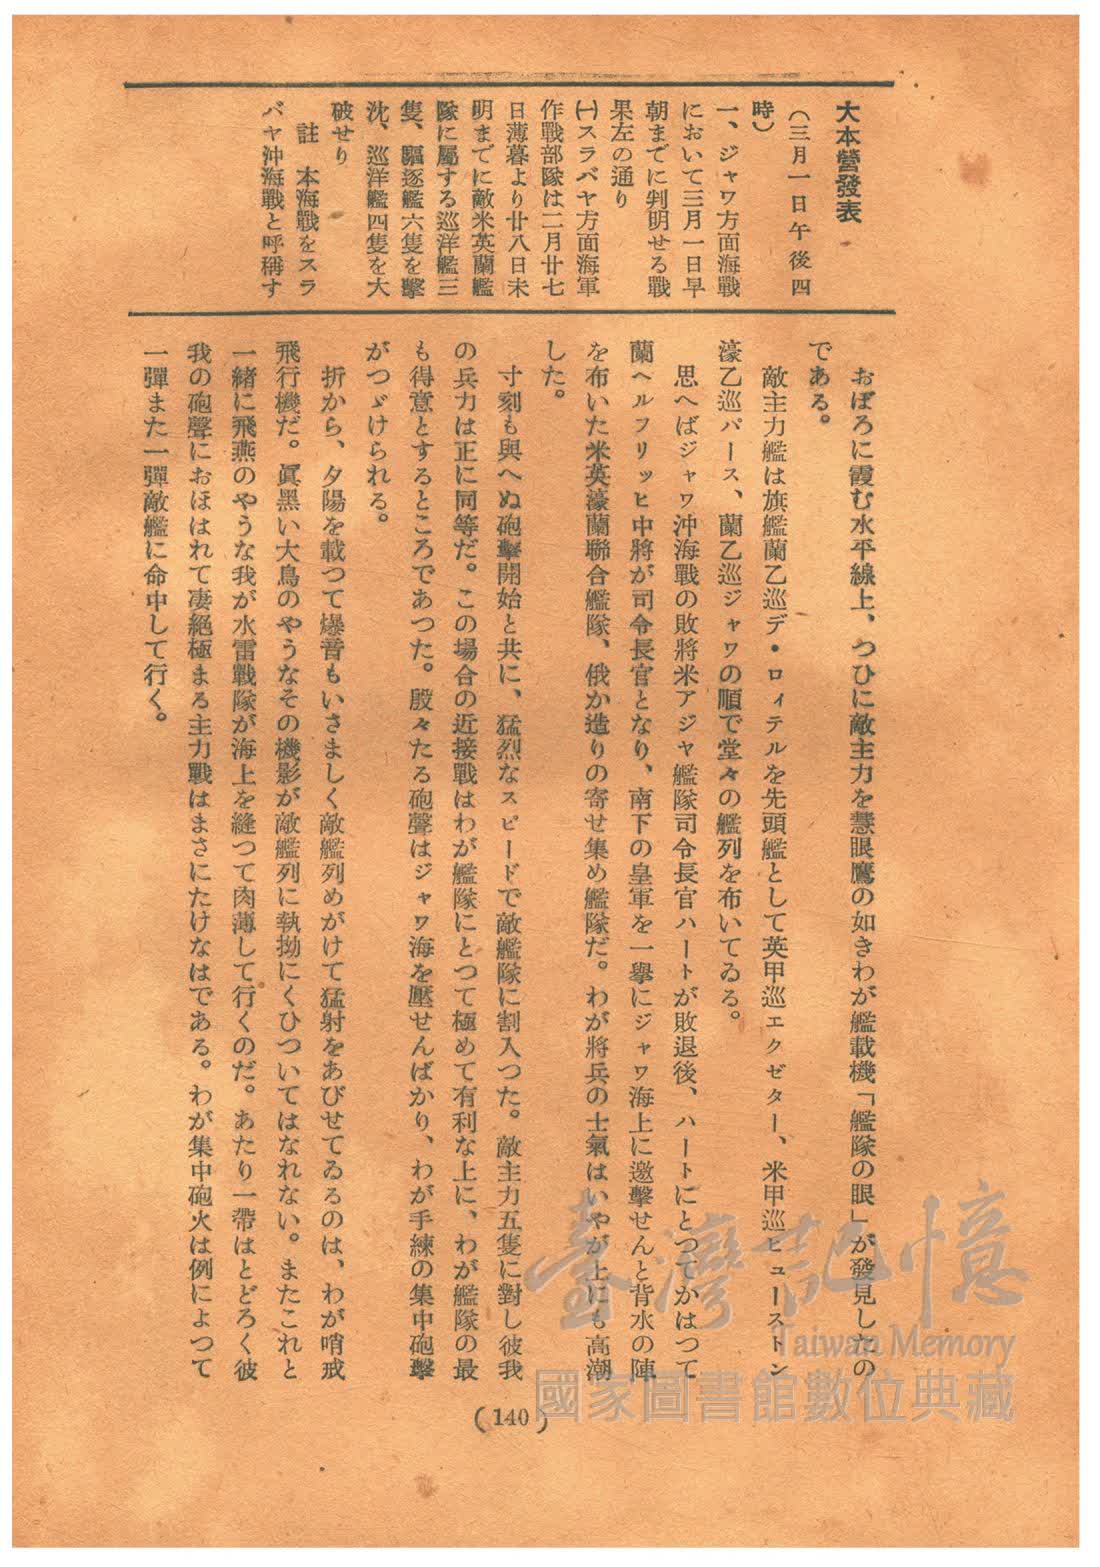 大本營發表
（三月一日午後四
時）
一、ジャワ方面海戰
において三月一日早
朝までに判明せる戰
果左の通り
㈠スラバヤ方面海軍
作戰部隊は二月廿七
日薄暮より廿八日未
明までに敵米英蘭艦
隊に屬する巡洋艦三
隻、驅逐艦六隻を擊
沈、巡洋艦四隻を大
破せり
註　本海戰をスラ
バヤ沖海戰と呼稱す
おぼろに霞む水平線上、つひに敵主力を慧眼鷹の如きわが艦載機「艦隊の眼」が發見したの
である。
敵主力艦は旗艦蘭乙巡デ・ロィテルを先頭艦として英甲巡エクゼター、米甲巡ヒューストン
濠乙巡パース、蘭乙巡ジャワの順で堂々の艦列を布いてゐる。
思へばジャワ沖海戰の敗將米アジャ艦隊司令長官ハートが敗退後、ハートにとつてかはつて
蘭ヘルフリッヒ中將が司令長官となり、南下の皇軍を一擧にジャワ海上に邀擊せんと背水の陣
を布いた米英濠蘭聯合艦隊、俄か造りの寄せ集め艦隊だ。わが將兵の士氣はいやが上にも高潮
した。
寸刻も與へぬ砲擊開始と共に、猛烈なスピードで敵艦隊に割入つた。敵主力五隻に對し彼我
の兵力は正に同等だ。この場合の近接戰はわが艦隊にとつて極めて有利な上に、わが艦隊の最
も得意とするところであつた。殷々たる砲聲はジャワ海を壓せんばかり、わが手練の集中砲擊
がつゞけられる。
折から、夕陽を載つて爆音もいさましく敵艦列めがけて猛射をあびせてゐるのは、わが哨戒
飛行機だ。眞黑い大鳥のやうなその機影が敵艦列に執拗にくひついてはなれない。またこれと
一緖に飛燕のやうな我が水雷戰隊が海上を縫つて肉薄して行くのだ。あたり一帶はとどろく彼
我の砲聲におほはれて凄絕極まる主力戰はまさにたけなはである。わが集中砲火は例によつて
一彈また一彈敵艦に命中して行く。
（140）
臺灣記憶
Taiwan Memory
國家圖書館數位典藏